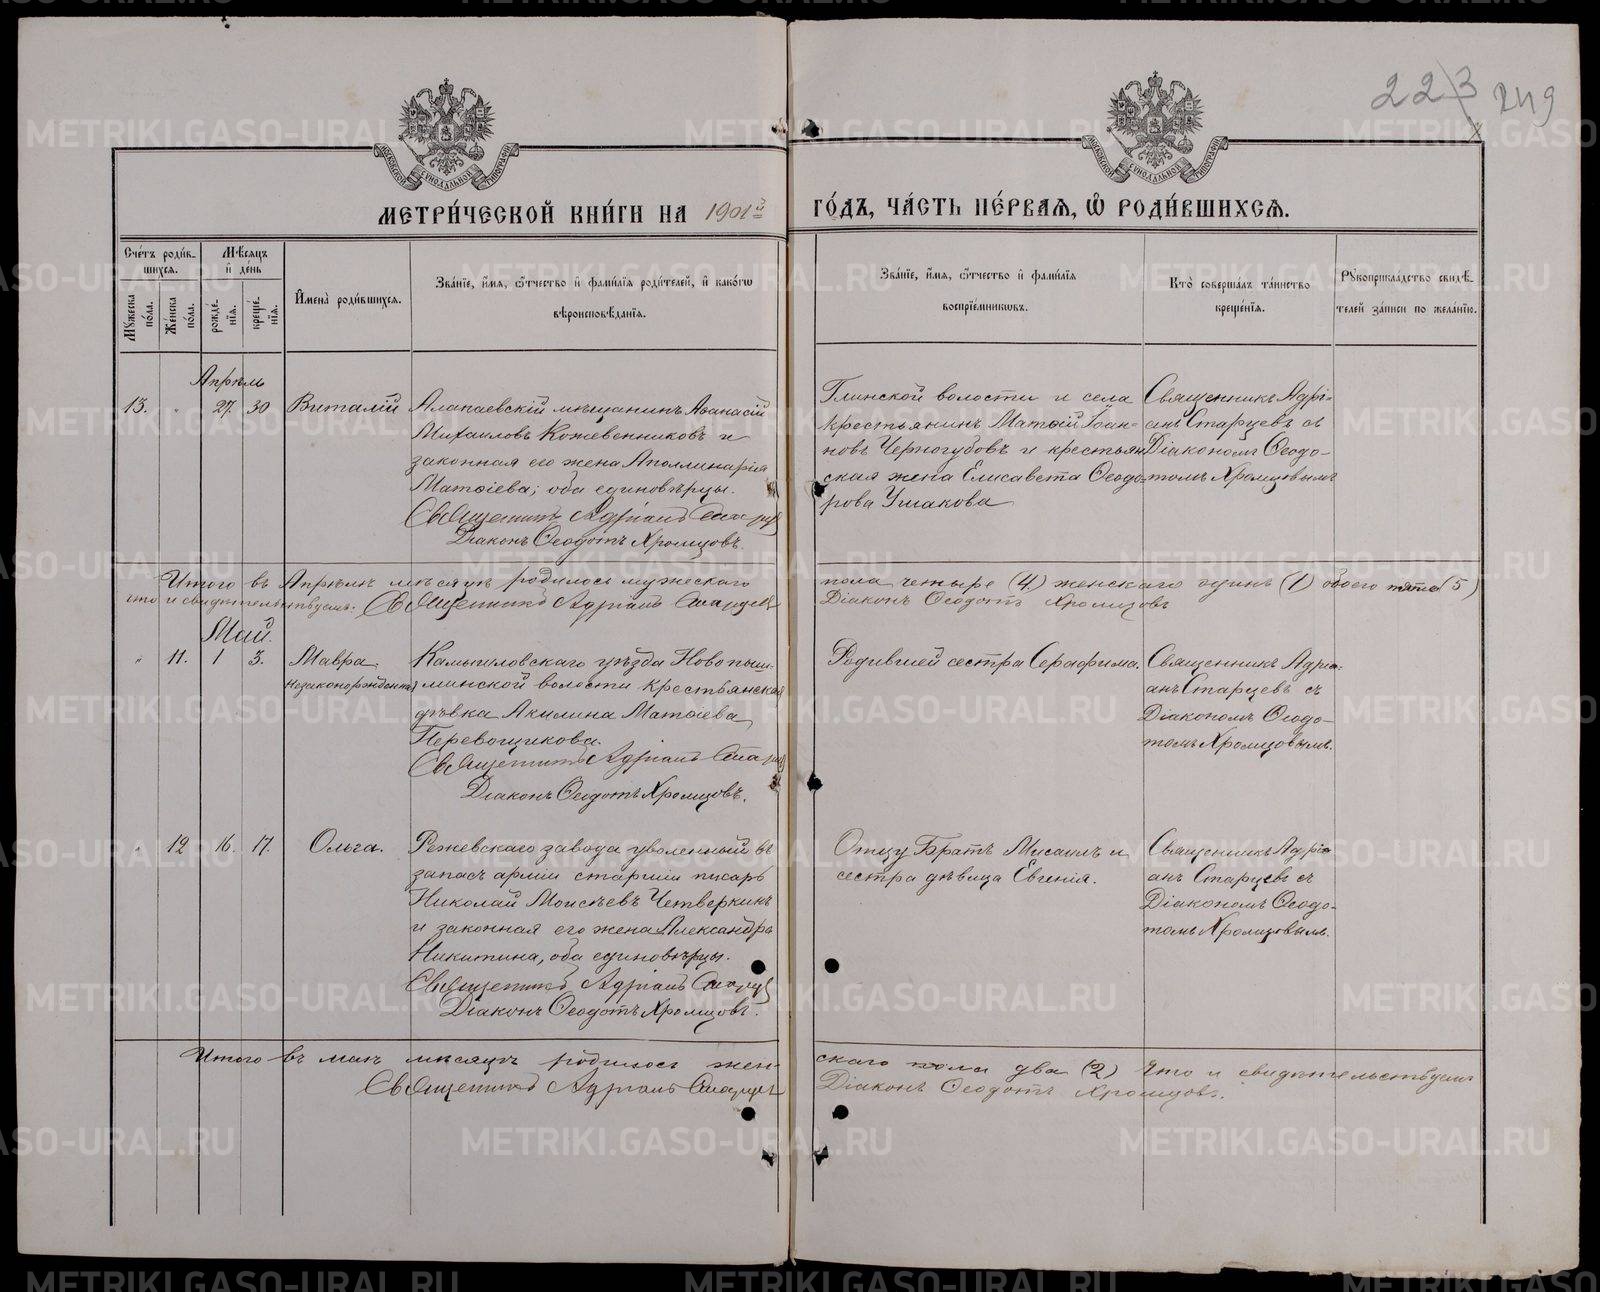 223 249
МЕТРИ́ЧЕСКОЙ КНИ́ГИ НА 1901й
ГО́ДЪ, ЧА́СТЬ ПЕ́РВАЯ, Ѽ РОДИ́ВШИХСЯ.
Сче́тъ роди́в-
шихся.
Мѣ́сяцъ
и҆ де́нь
Му́жеска
по́ла.
Же́нска
по́ла.
рожде́-
нїя.
креще́-
нїя.
И҆мена̀ роди́вшихся.
Зва́нїе, и҆́мя, ѻ҆́тчество и҆ фами́лїя роди́телей, и҆ како́гѡ
вѣроисповѣ́данїя.
Зва́нїе, и҆́мя, ѻ҆́тчество и҆ фами́лїя
воспрїе́мникѡвъ.
Кто̀ соверша́лъ та́инство
креще́нїя.
Рꙋкоприкла́дство свидѣ́-
телей за́писи по жела́нїю.
Апрѣль
13. " 27. 30 Виталій
Алапаевскій мѣщанинъ Аѳанасій
Михаиловъ Кожевенниковъ и
законная его жена Аполлинарія
Матѳіева; оба единовѣрцы.
Священникъ Адріанъ Старцев
Діаконъ Ѳеодотъ Хромцовъ.
Глинской волости и села
крестьянинъ Матѳій Іоан-
новъ Черногубовъ и крестьян
ская жена Елисавета Ѳеодо-
рова Ушакова
Священникъ Адрі-
анъ Старцевъ съ
Діакономъ Ѳеодо-
томъ Хромцовымъ
Итого въ Апрѣлѣ мѣсяцѣ родилось мужескаго
пола четыре (4) женскаго одинъ (1) обоего пять (5)
что и свидѣтельствуемъ: Священникъ Адріанъ Старцев
Діаконъ Ѳеодотъ Хромцовъ
Май.
" 11. 1 3. Мавра
незаконорожденная
Камышловскаго уѣзда Новопыш-
минской волости крестьянская
дѣвка Акилина Матѳіева
Перевощикова.
Священникъ Адріанъ Старцев
Діаконъ Ѳеодотъ Хромцовъ.
Родившей сестра Серафима.
Священникъ Адрі-
анъ Старцевъ съ
Діакономъ Ѳеодо-
томъ Хромцовымъ.
" 12 16. 17. Ольга.
Режевскаго завода уволенный въ
запасъ арміи старшій писарь
Николай Моисѣевъ Четверкинъ
и законная его жена Александра
Никитина, оба единовѣрцы.
Священникъ Адріанъ Старцев
Діаконъ Ѳеодотъ Хромцовъ.
Отцу Братъ Мисаилъ и
сестра дѣвица Евгенія.
Священникъ Адрі-
анъ Старцевъ съ
Діакономъ Ѳеодо-
томъ Хромцовымъ.
Итого въ маѣ мѣсяцѣ родилось жен-
скаго пола два (2) Что и свидѣтельствуемъ
Священникъ Адріанъ Старцев
Діаконъ Ѳеодотъ Хромцовъ.
METRIKI.GASO-URAL.RU